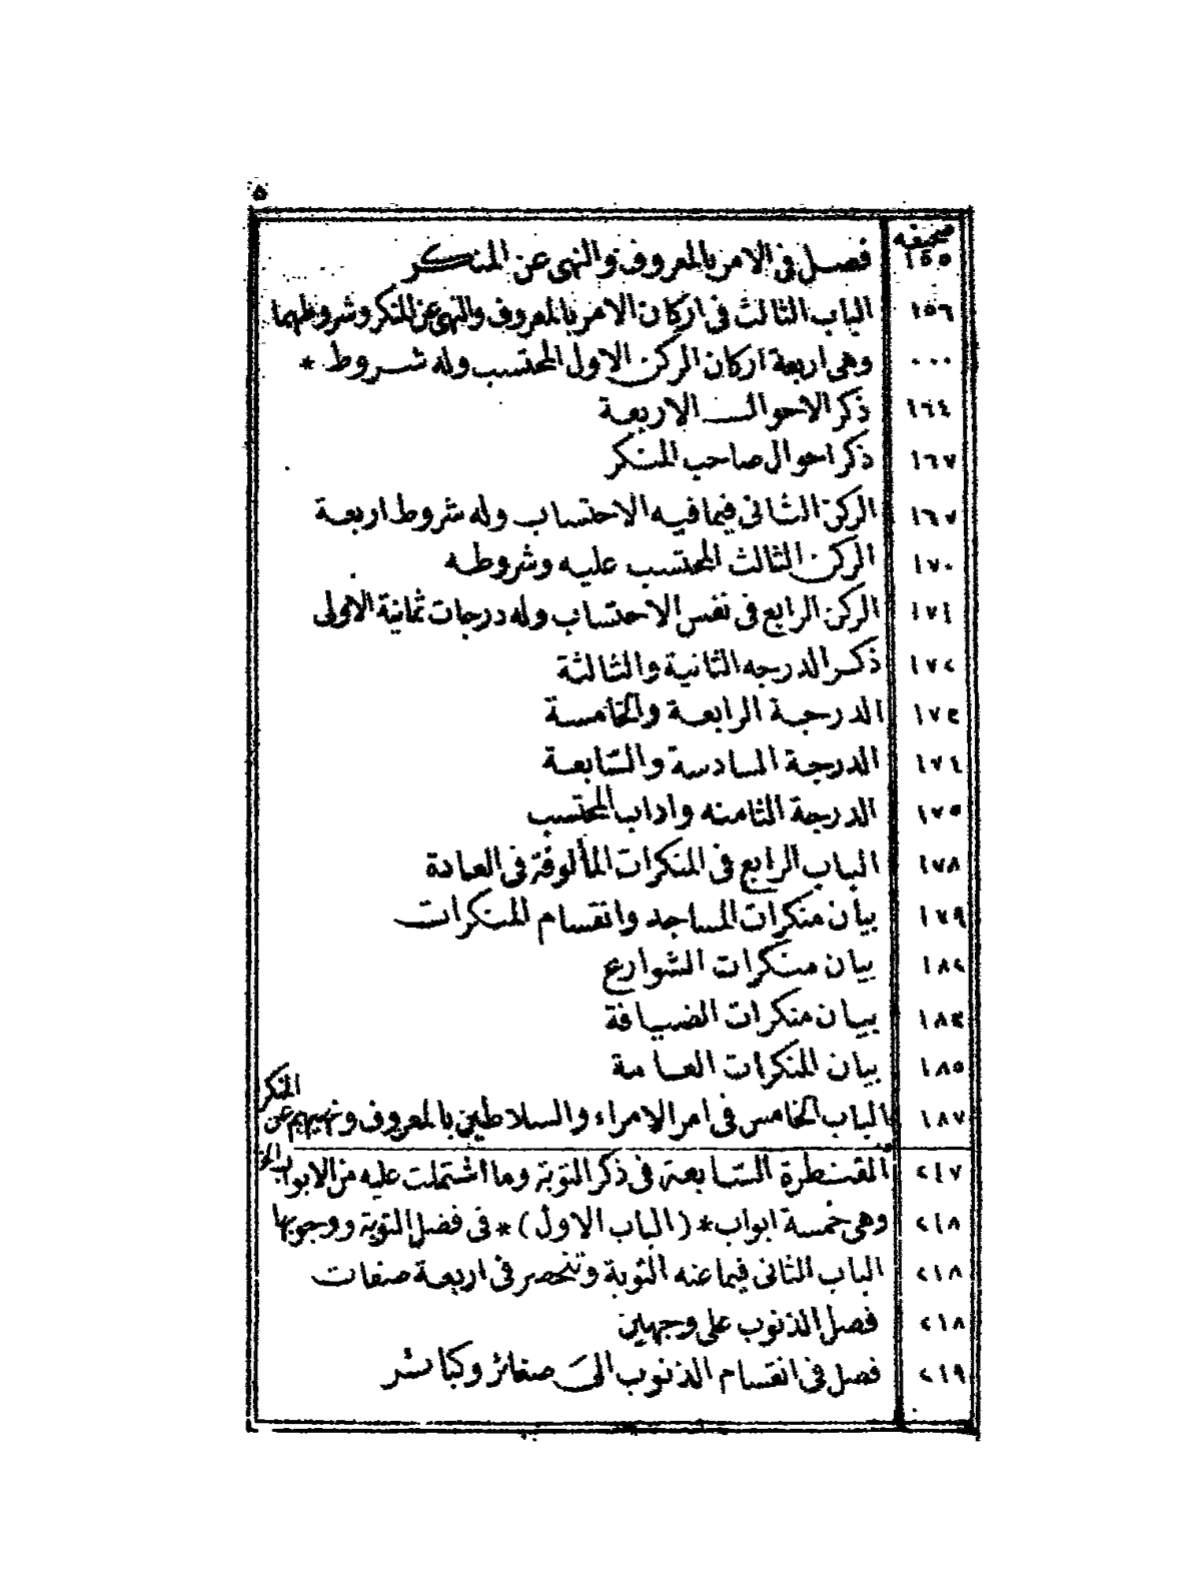 ٥
صحيفه
١٥٥ فصل في الامر بالمعروف والنهى عن المنكر
١٥٦ الباب الثالث فى اركان الامر بالمعروف والنهى عن المنكر وشروطهما
٠٠٠ وهى اربعة اركان الركن الاول المحتسب وله شروط *
١٦٤ ذكر الاحوال الاربعة
١٦٧ ذكر احوال صاحب المنكر
١٦٧ الركن الثانى فيما فيه الاحتساب وله شروط اربعة
١٧٠ الركن الثالث المحتسب عليه وشروطه
١٧١ الركن الرابع فى نفس الاحتساب وله درجات ثمانية الاولى
١٧٢ ذكر الدرجه الثانية والثالثة
١٧٣ الدرجة الرابعة والخامسة
١٧٤ الدرجة السادسة والسابعة
١٧٥ الدرجة الثامنه واداب المحتسب
١٧٨ الباب الرابع فى المنكرات المألوفة فى العادة
١٧٩ بيان منكرات المساجد وانقسام المنكرات
١٨٢ بيان منكرات الشوارع
١٨٣ بيان منكرات الضيافة
١٨٥ بيان المنكرات العامة
١٨٧ الباب الخامس فى امر الامراء والسلاطين بالمعروف ونهيهم عن المنكر
٢١٧ القنطرة السابعة فى ذكر التوبة وما اشتملت عليه من الابواب الخ
٢١٨ وهى خمسة ابواب * (الباب الاول) * فى فضل التوبة ووجوبها
٢١٨ الباب الثانى فيما عنه التوبة وتنحصر فى اربعة صفات
٢١٨ فصل الذنوب على وجهين
٢١٩ فصل فى انقسام الذنوب الى صغائر وكبائر